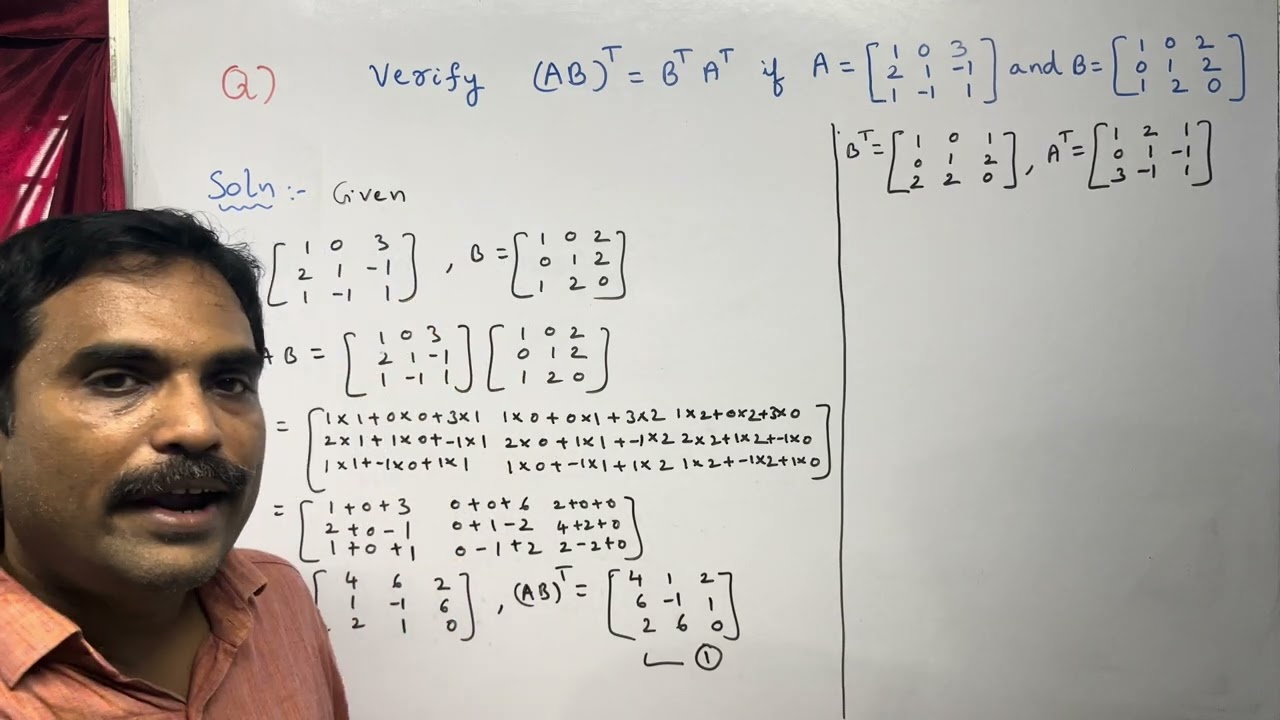 Q) Verify (AB)ᵀ = Bᵀ Aᵀ if A = [1 0 3; 2 1 -1; 1 -1 1] and B = [1 0 2; 0 1 2; 1 2 0]
Soln :- Given
[1 0 3; 2 1 -1; 1 -1 1] , B = [1 0 2; 0 1 2; 1 2 0]
AB = [1 0 3; 2 1 -1; 1 -1 1] [1 0 2; 0 1 2; 1 2 0]
= [1×1+0×0+3×1 1×0+0×1+3×2 1×2+0×2+3×0
2×1+1×0+-1×1 2×0+1×1+-1×2 2×2+1×2+-1×0
1×1+-1×0+1×1 1×0+-1×1+1×2 1×2+-1×2+1×0]
= [1+0+3 0+0+6 2+0+0
2+0-1 0+1-2 4+2+0
1+0+1 0-1+2 2-2+0]
[4 6 2; 1 -1 6; 2 1 0] , (AB)ᵀ = [4 1 2; 6 -1 1; 2 6 0]
①
Bᵀ = [1 0 1; 0 1 2; 2 2 0] , Aᵀ = [1 2 1; 0 1 -1; 3 -1 1]